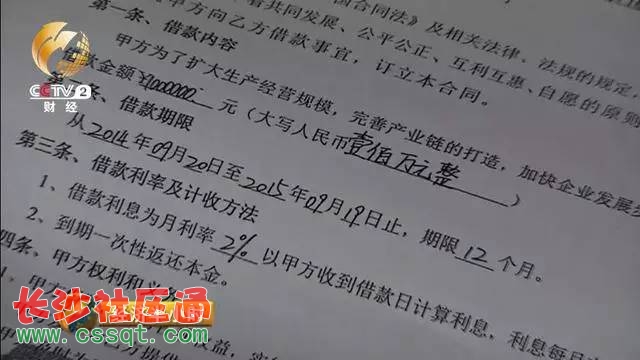 国合同法》及相关法律、法规的规定,
着共同发展、公平公正、互利互惠、自愿的原则
甲方向乙方借款事宜,订立本合同。
第一条、借款内容
甲方为了扩大生产经营规模,完善产业链的打造,加快企业发展
借款金额¥1000000元(大写人民币壹佰万元整)
条、借款期限
从2014年09月20日至2015年09月19日止,期限12个月。
第三条、借款利率及计收方法
1、借款利息为月利率2%以甲方收到借款日计算利息,利息每
2、到期一次性返还本金。
四条、甲方权利和义
1、甲方
CCTV2
财经
长沙社区通
www.cssqt.com